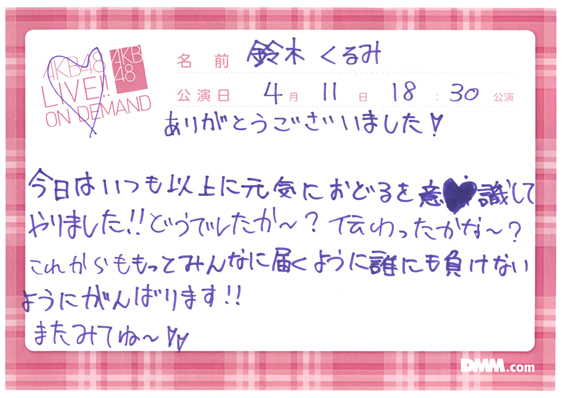 AKB48 LIVE!! ON DEMAND
AKB48
名前 鈴木 くるみ
公演日 4月 11日 18:30 公演
ありがとうございました♡
今日はいつも以上に元気におどるを意♥識して
やりました!!どうでしたか〜?伝わったかな〜?
これからももっとみんなに届くように誰にも負けない
ようにがんばります!!
またみてね〜♡♡
DMM.com